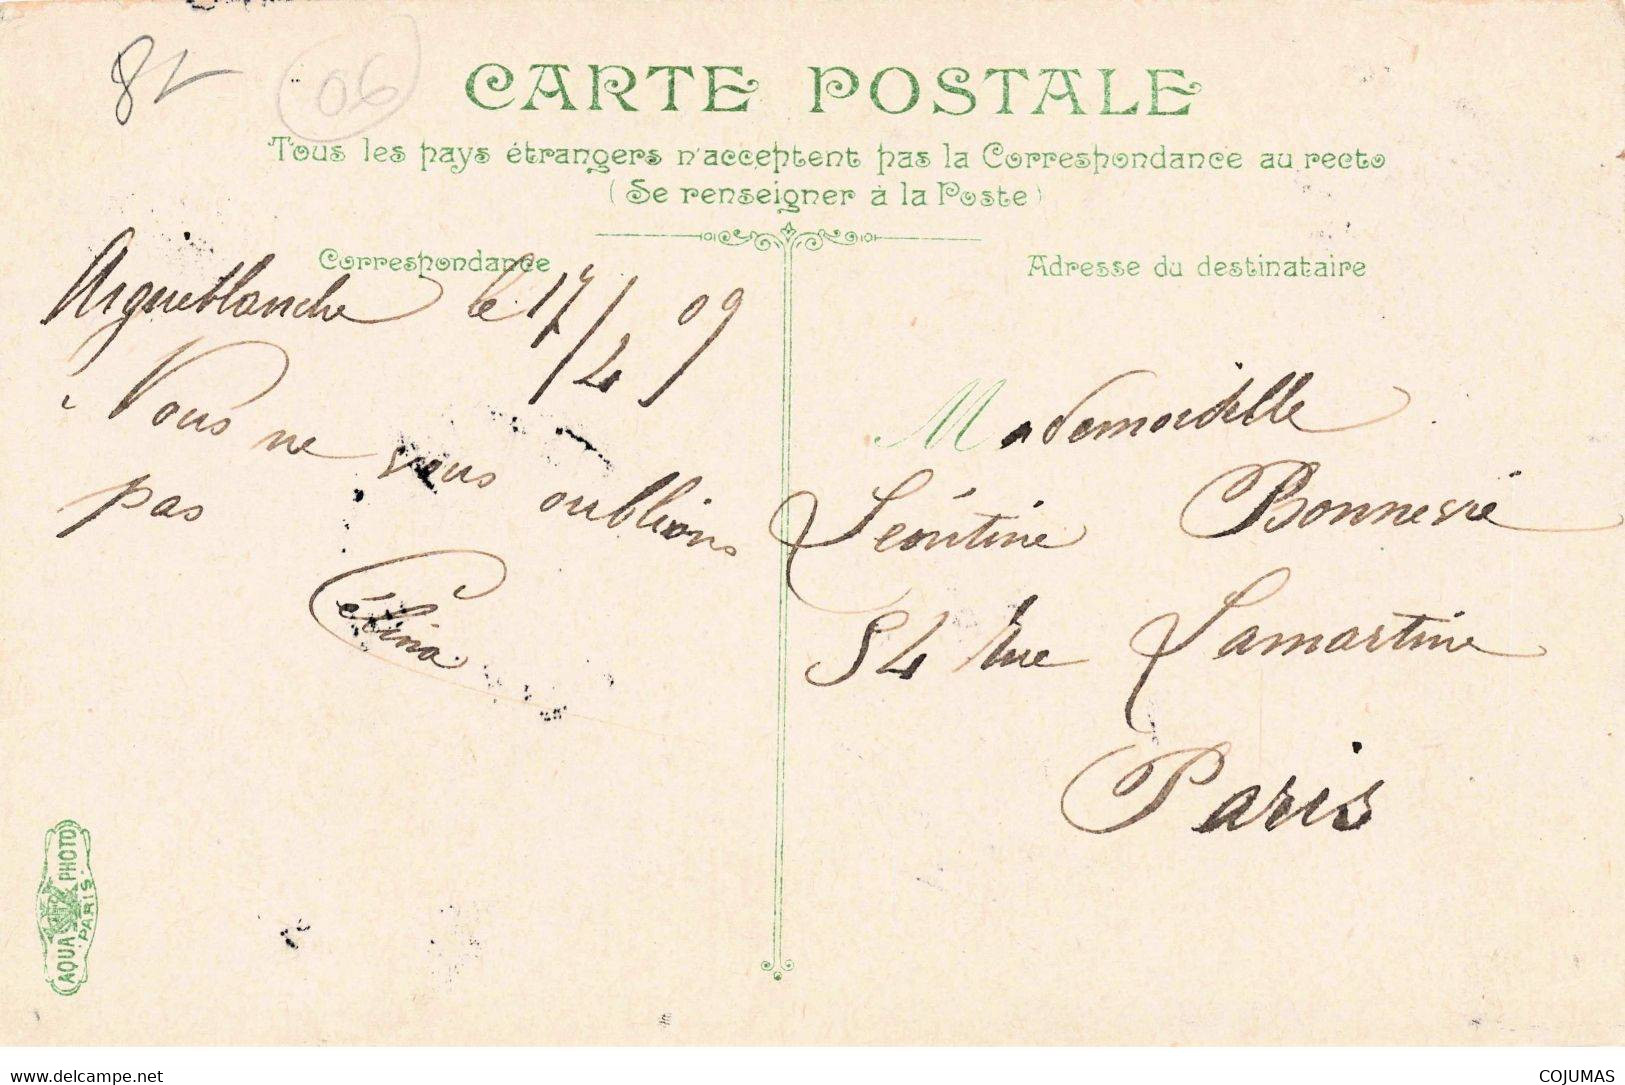 82
06
CARTE POSTALE
Tous les pays étrangers n'acceptent pas la Correspondance au recto
(Se renseigner à la Poste)
Correspondance
Adresse du destinataire
Aigueblanche le 17/4 09
Nous ne vous oublions
pas
Célina
Mademoiselle
Léontine Bonnevie
54 Rue Lamartine
Paris
AQUA PHOTO
PARIS
www.delcampe.net
COJUMAS